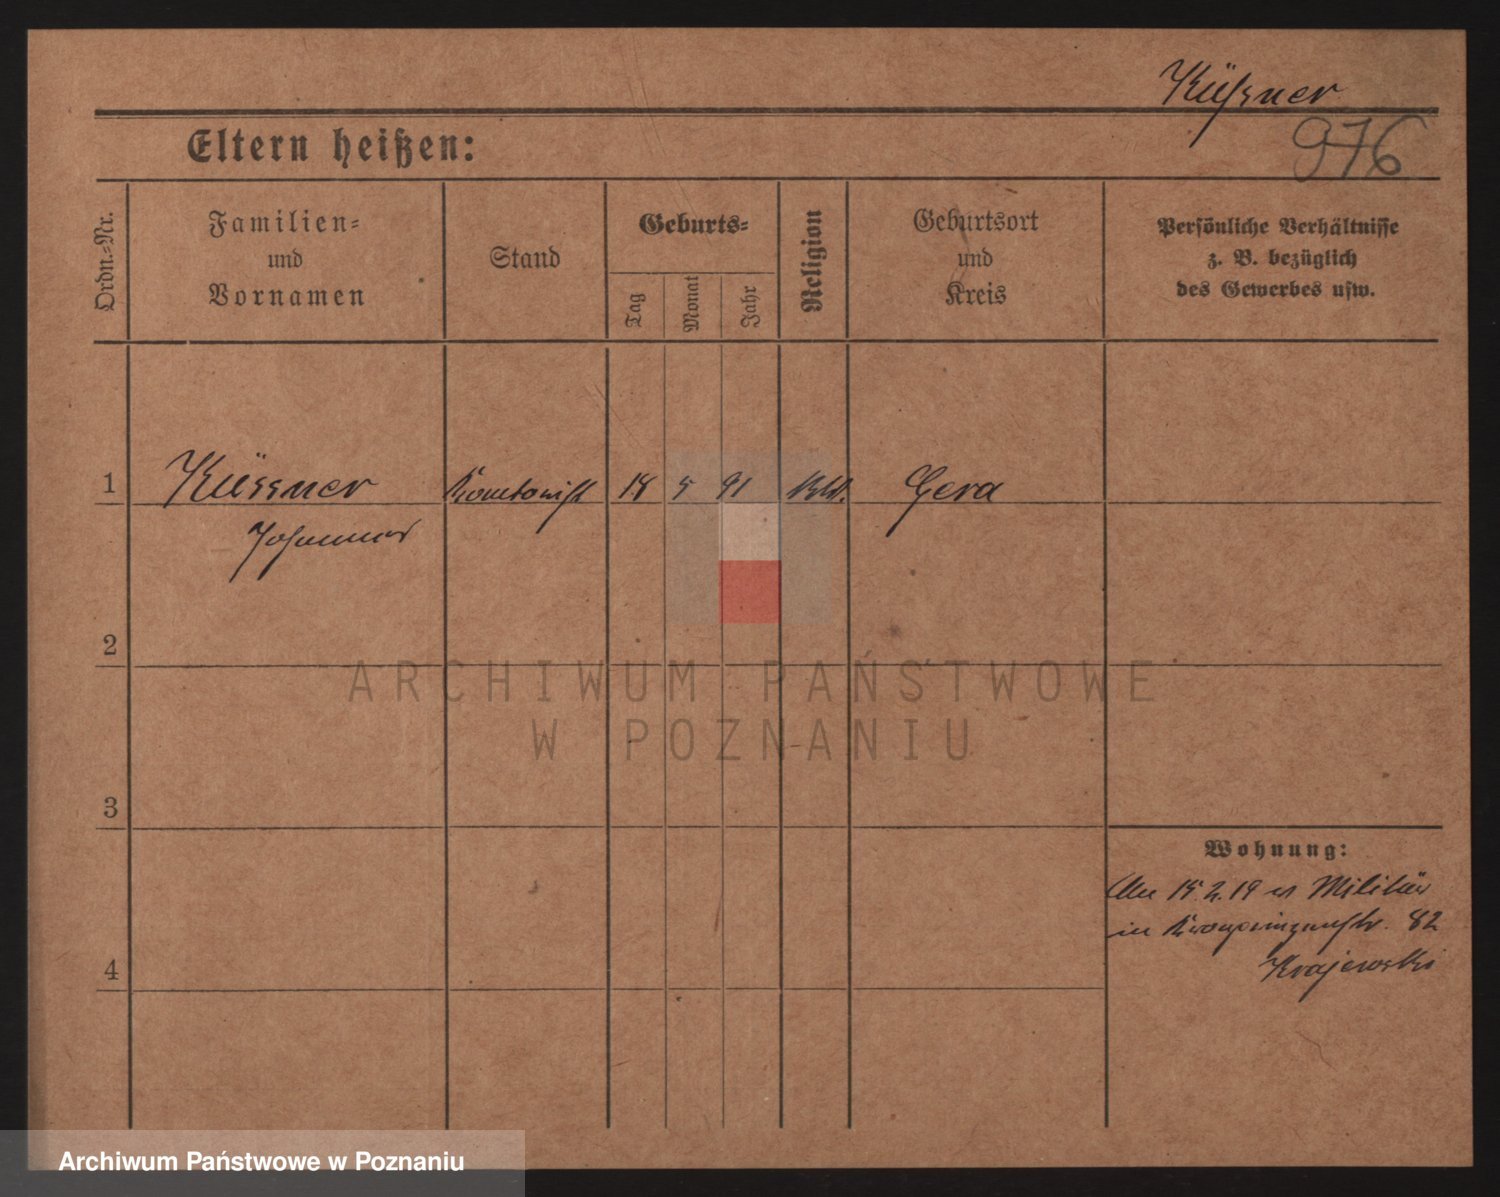 Küßner
976
Eltern heißen:
Ordn.-Nr.
Familien-
und
Vornamen
Stand
Geburts-
Tag
Monat
Jahr
Religion
Geburtsort
und
Kreis
Persönliche Verhältnisse
z. B. bezüglich
des Gewerbes usw.
1
Küssner
Kontorist
18
5
91
Gera
Johannes
2
ARCHIWUM PAŃSTWOWE
W POZNANIU
3
Wohnung:
19 Militär
in Kronprinzenstr. 82
Krajewski
4
Archiwum Państwowe w Poznaniu